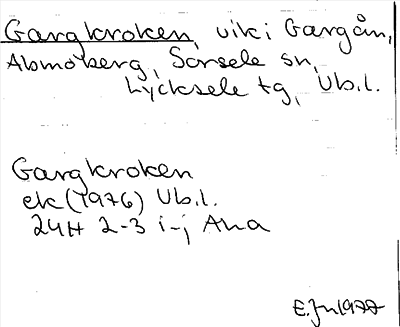 Gargkroken, vik i Gargån,
Abmoberg, Sorsele sn,
Lycksele tg, Vb.l.
Gargkroken
ek (1976) Vb.l.
24H 2-3 i-j Aha
E.Jn 1977